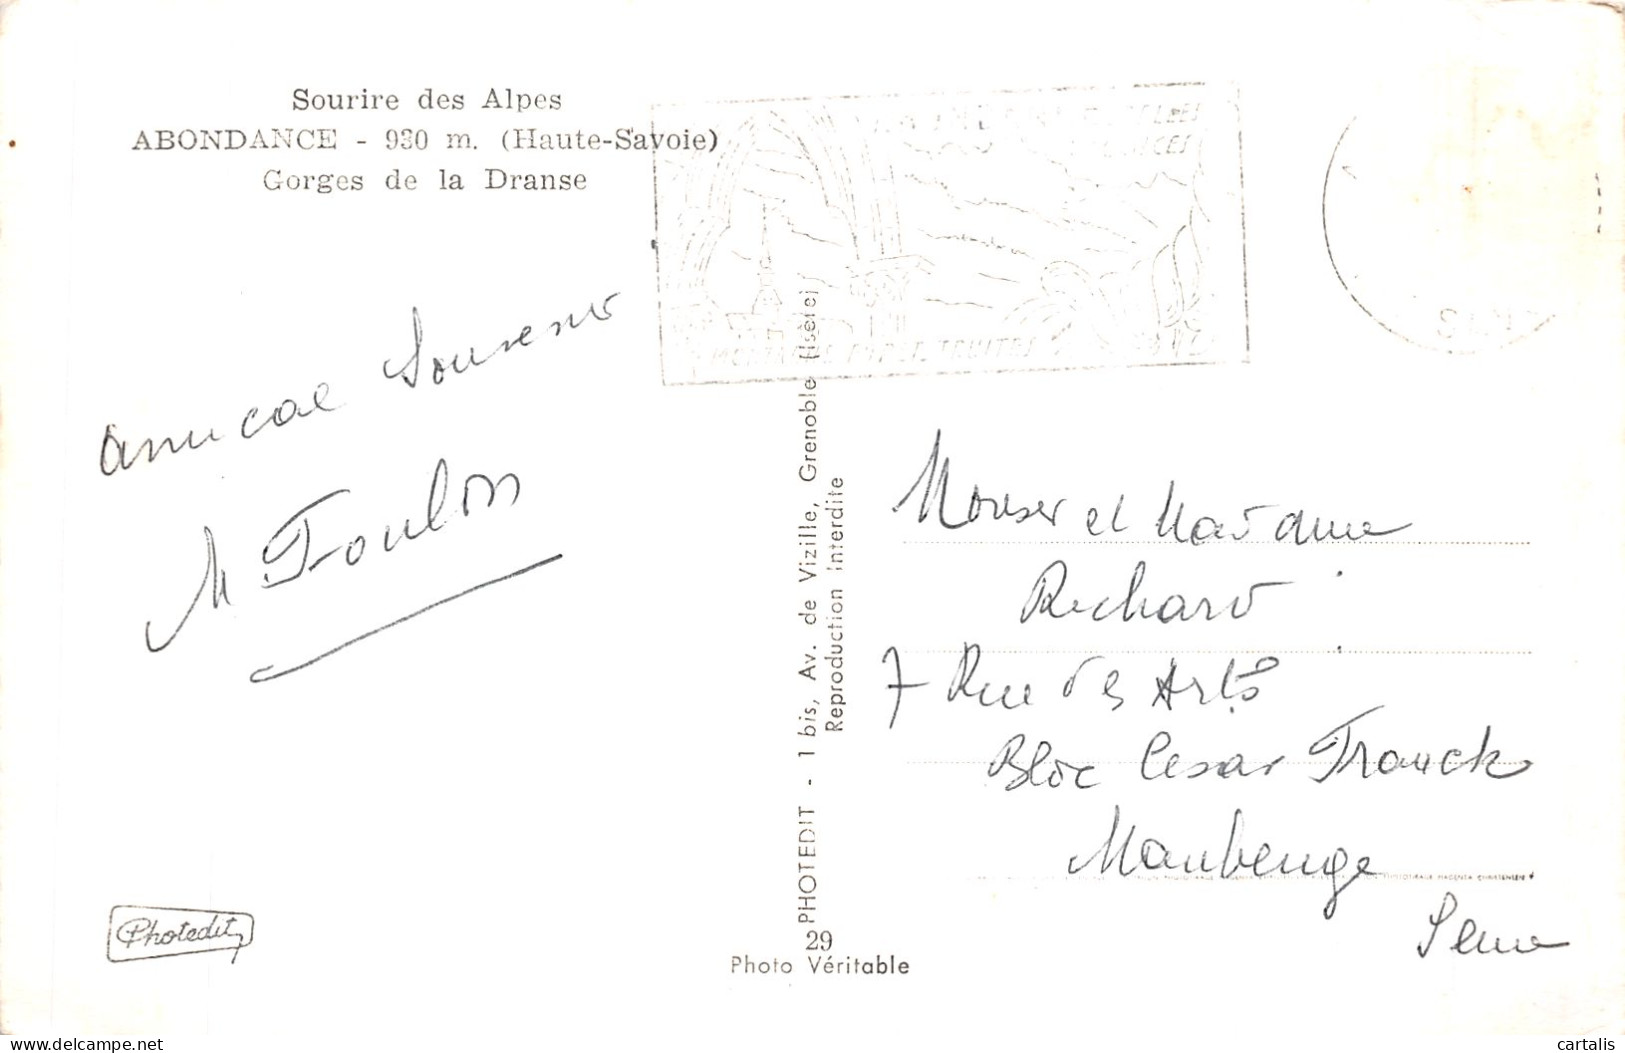 Sourire des Alpes
ABONDANCE - 930 m. (Haute-Savoie)
Gorges de la Dranse
amical Souvenir
M Foulon
PHOTEDIT - 1 bis, Av. de Vizille, Grenoble (Isère)
Reproduction Interdite
MONTAGNE FORET TRUITES
Monsier et Madame
Richard
7 Rue des Arts
Bloc Cesar Franck
Maubeuge
Photedit
29
Photo Véritable
cartalis